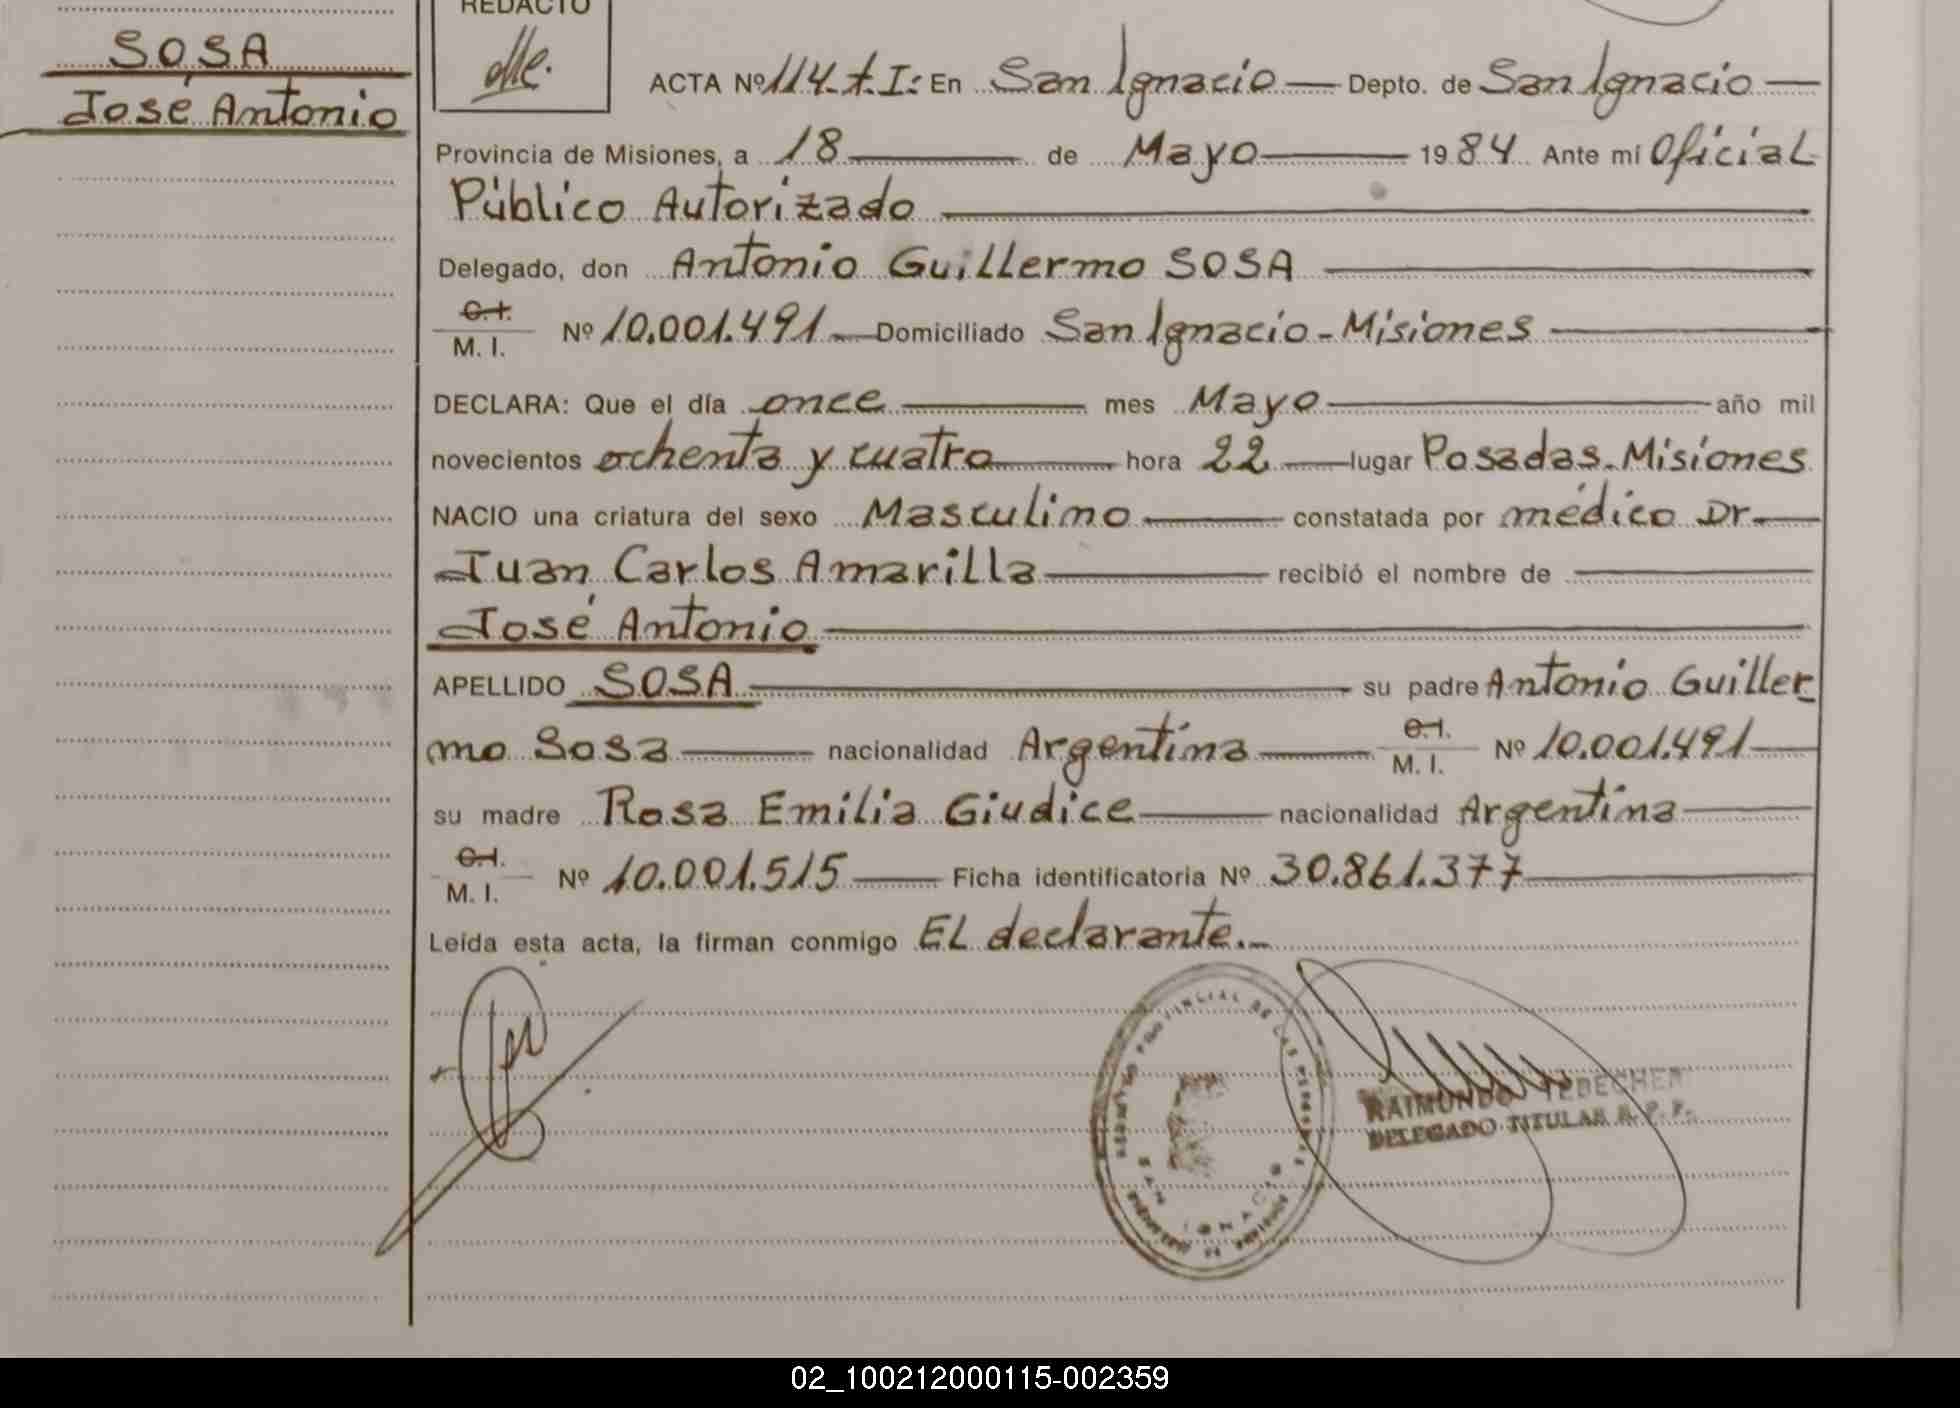 REDACTO
SOSA,
José Antonio
ACTA Nº 114.-t.I: En San Ignacio — Depto. de San Ignacio —
Provincia de Misiones, a 18 — de Mayo — 1984 Ante mí Oficial
Público Autorizado —
Delegado, don Antonio Guillermo SOSA —
C.I.
M. I. Nº 10.001.491 — Domiciliado San Ignacio - Misiones —
DECLARA: Que el día once — mes Mayo — año mil
novecientos ochenta y cuatro — hora 22 — lugar Posadas - Misiones
NACIO una criatura del sexo Masculino — constatada por médico Dr —
Juan Carlos Amarilla — recibió el nombre de —
José Antonio —
APELLIDO SOSA — su padre Antonio Guiller-
mo Sosa — nacionalidad Argentina — C.I. M. I. Nº 10.001.491 —
su madre Rosa Emilia Giudice — nacionalidad Argentina —
C.I.
M. I. Nº 10.001.515 — Ficha identificatoria Nº 30.861.377 —
Leída esta acta, la firman conmigo EL declarante.-
PROVINCIAL DE LAS PERSONAS
SAN IGNACIO
RAIMUNDO TEDECHER
DELEGADO TITULAR R. P. P.
02_100212000115-002359